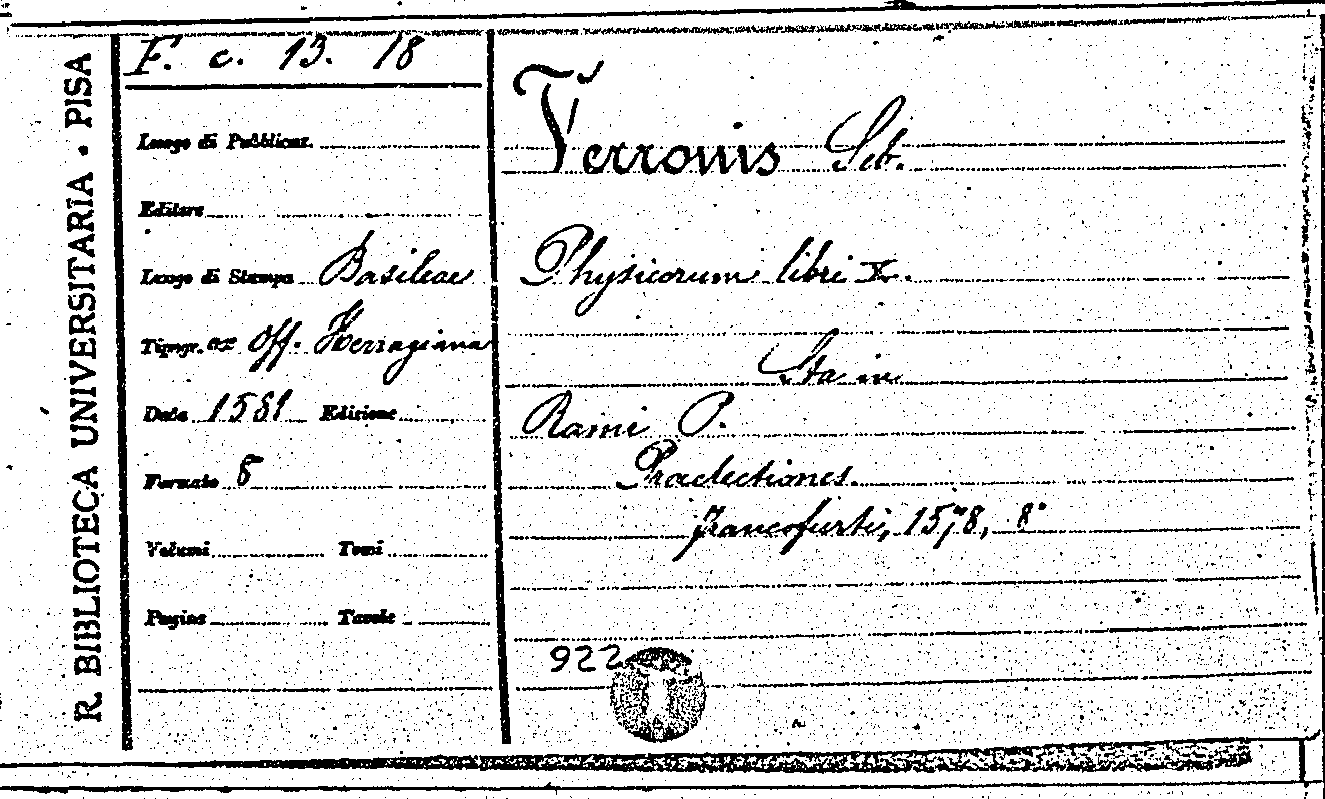 R. BIBLIOTECA UNIVERSITARIA · PISA
F. c. 13. 18
Luogo di Pubblicaz.
Editore
Luogo di Stampa Basileae
Tipogr. ex Off. Hervagiana
Data 1581 Edizione
Formato 8
Volumi Tomi
Pagine Tavole
Verronis Seb.
Physicorum libri X.
Sta in
Rami P.
Praelectiones.
Francofurti, 1578, 8°
922